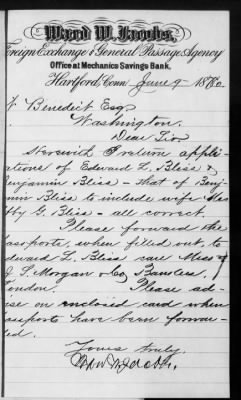 Ward W. Jacobs,
Foreign Exchange & General Passage Agency
Office at Mechanics Savings Bank,
Hartford, Conn June 9 1880
Benedict Esq
Washington.
Dear Sir
Herewith I return appli-
cations of Edward L. Bliss &
Benjamin Bliss - that of Benj
min Bliss to include wife
G. Bliss - all correct.
Please forward the
passports, when filled out, to
Edward L. Bliss care
J. S. Morgan & Co, Bankers,
London. Please ad-
ise on enclosed card when
assports have been forwar-
ded.
Yours truly,
Ward W Jacobs.